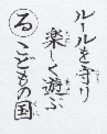 ルールを守り
楽しく遊ぶ
る こどもの国